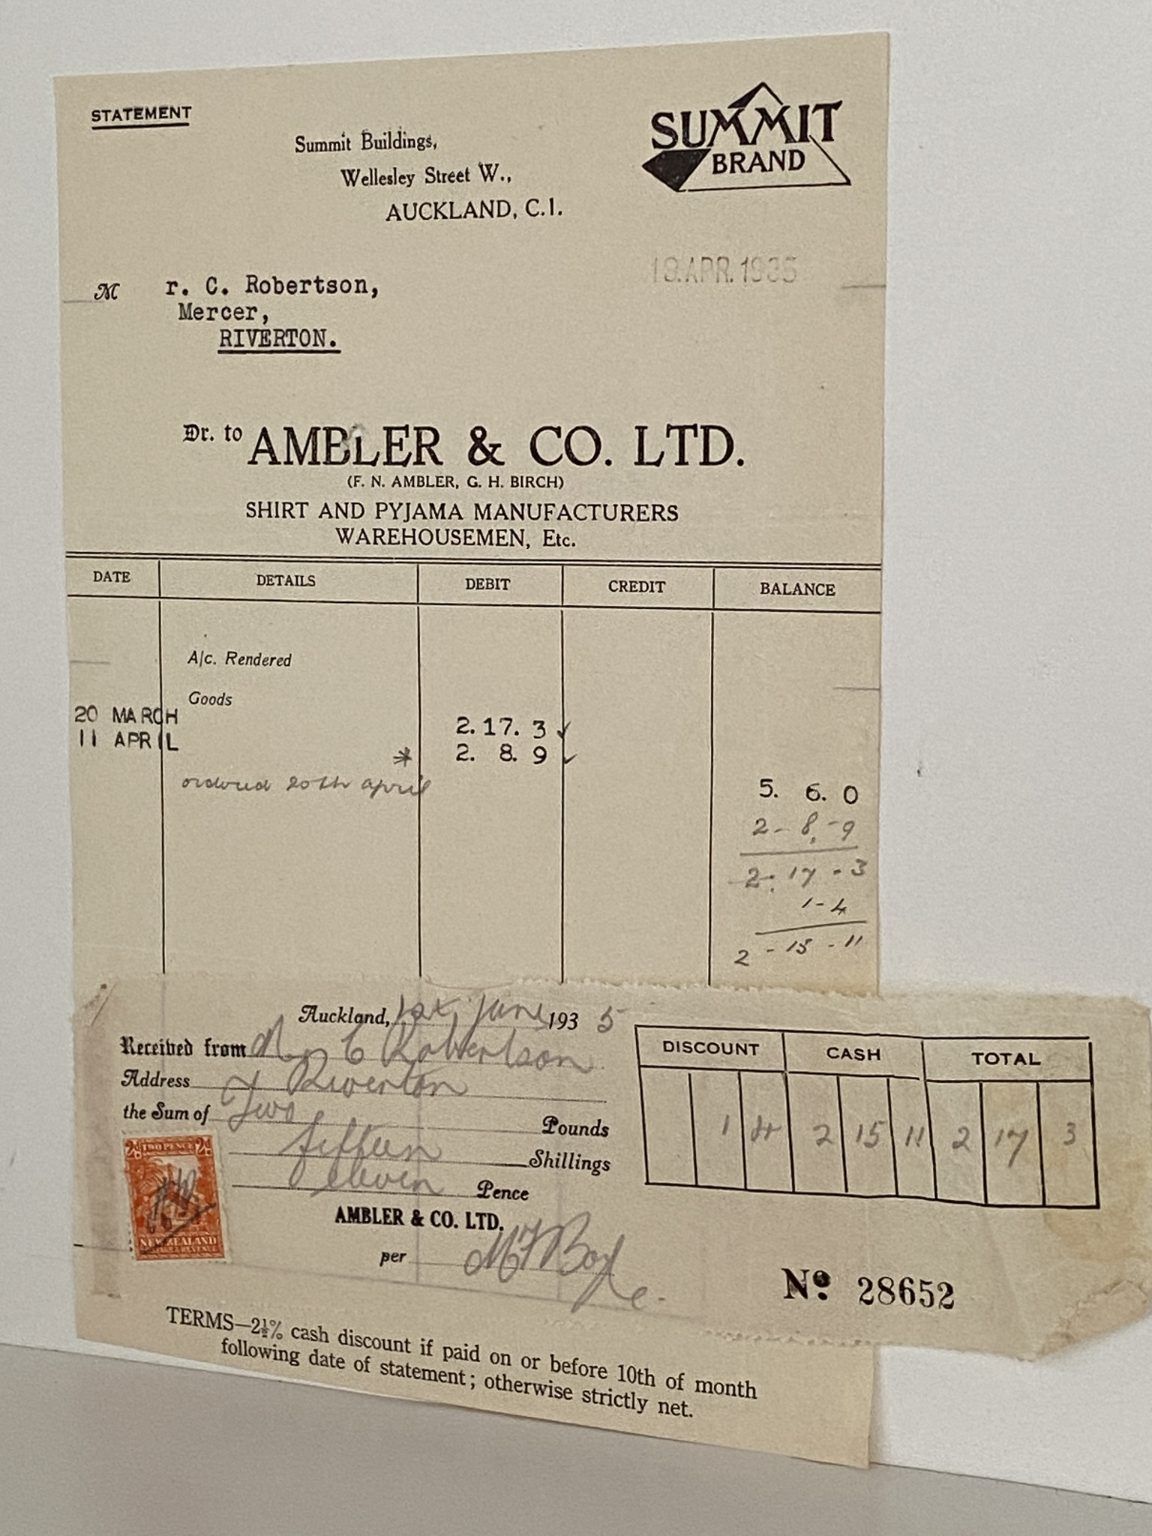 STATEMENT
Summit Buildings,
Wellesley Street W.,
AUCKLAND, C.1.
SUMMIT
BRAND
18.APR.1935
M r. C. Robertson,
Mercer,
RIVERTON.
Dr. to AMBLER & CO. LTD.
(F. N. AMBLER, G. H. BIRCH)
SHIRT AND PYJAMA MANUFACTURERS
WAREHOUSEMEN, Etc.
DATE DETAILS DEBIT CREDIT BALANCE
A/c. Rendered
Goods
20 MARCH 2. 17. 3 ✓
11 APRIL * 2. 8. 9 ✓
ordered 20th april 5. 6. 0
2 - 8. - 9
2 - 17 - 3
1 - 4
2 - 15 - 11
Auckland, 1st June 1935
Received from Mr C Robertson
Address Riverton
the Sum of Two Pounds
fifteen Shillings
eleven Pence
AMBLER & CO. LTD.
per
DISCOUNT CASH TOTAL
1 4 2 15 11 2 17 3
2d TWO PENCE 2d
NEW ZEALAND
POSTAGE & REVENUE
No. 28652
TERMS—2½% cash discount if paid on or before 10th of month
following date of statement; otherwise strictly net.